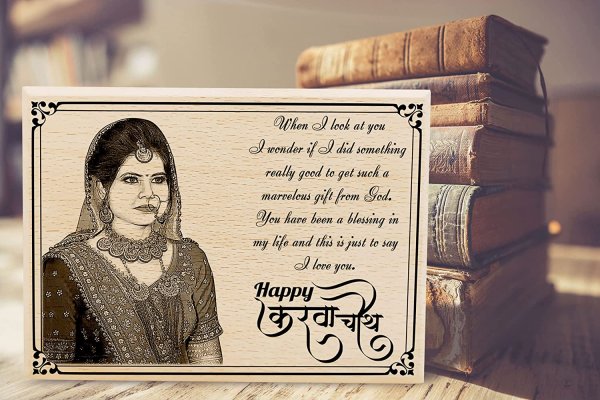 When I look at you
I wonder if I did something
really good to get such a
marvelous gift from God.
You have been a blessing in
my life and this is just to say
I love you.
Happy
करवा चौथ